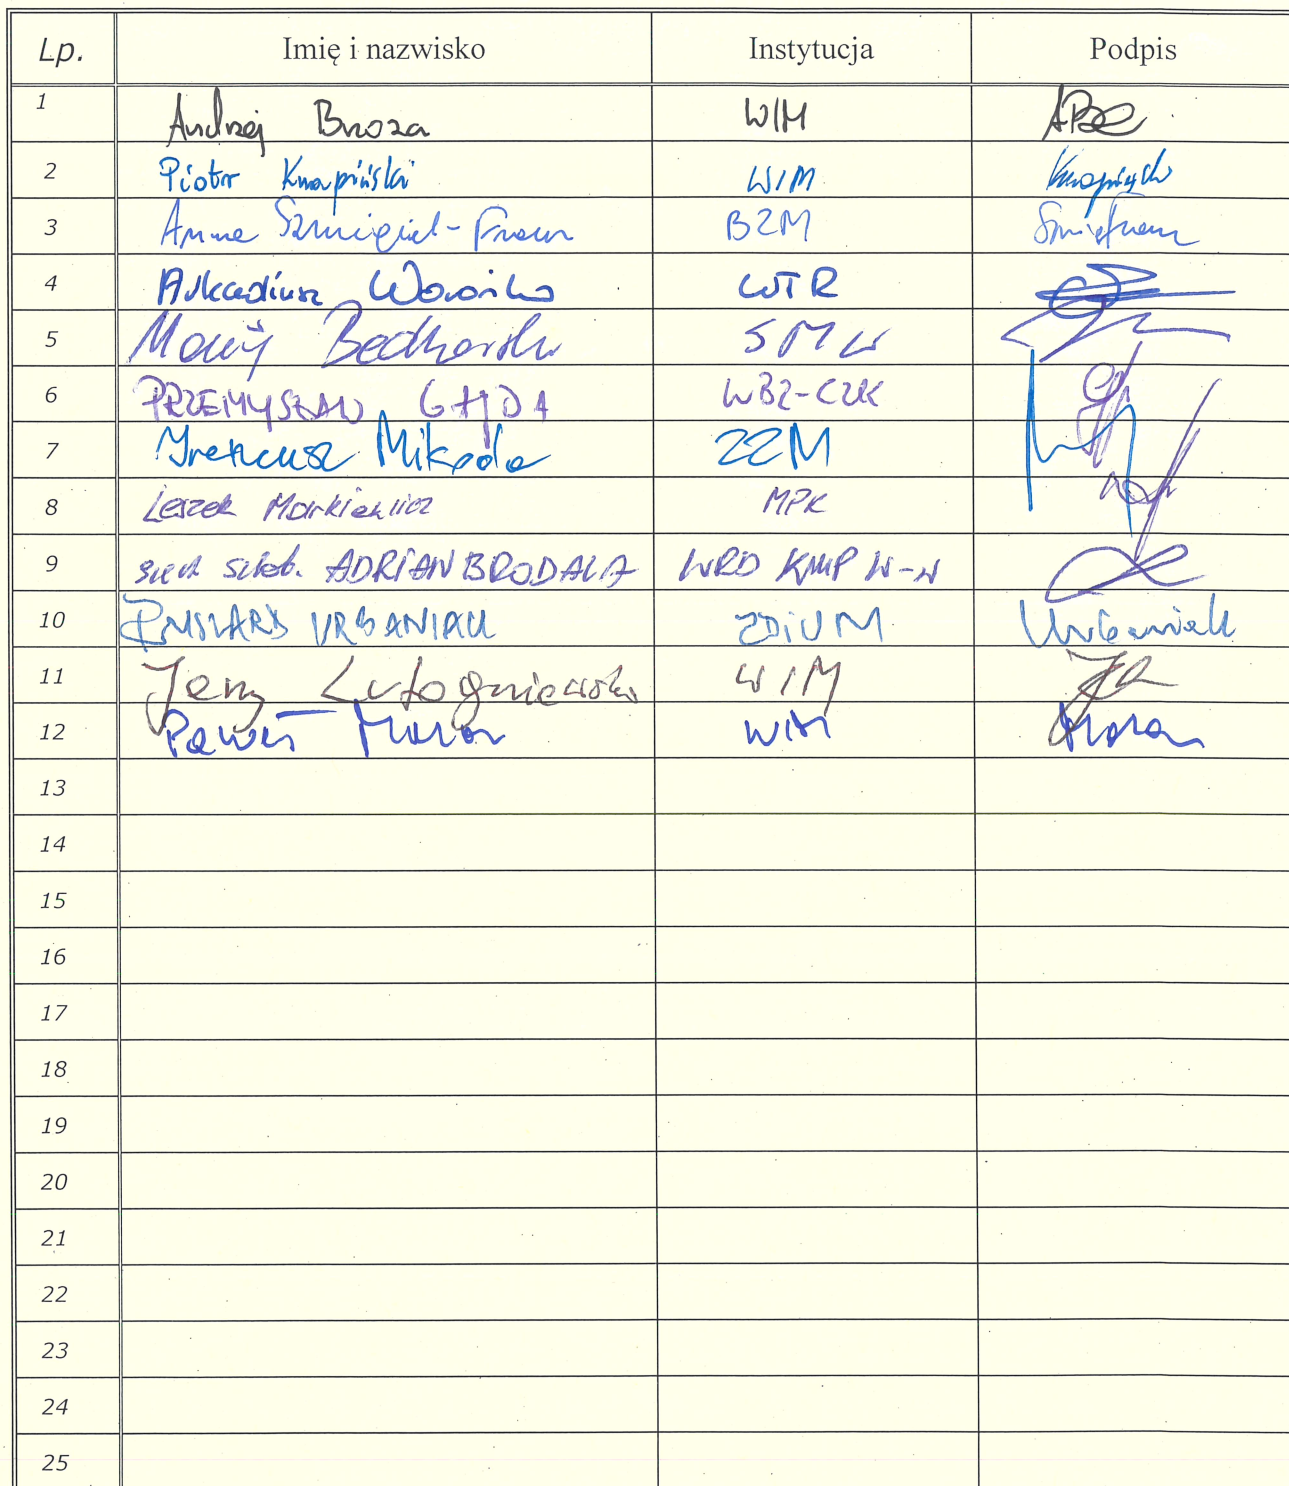 Lp. Imię i nazwisko Instytucja Podpis
1 Andrzej Brzoza WIM
2 Piotr Knapiński WIM Knapiński
3 Anna Szmigiel-Franz BZM
4 Arkadiusz WTR
5 Bednarski SMW
6 PRZEMYSŁAW GAJDA WBZ-CZK
7 Ireneusz Mikoda ZZM
8 Leszek Markiewicz MPK
9 ADRIAN BRODALA WRD KMP W-W
10 URBANIAK ZDIUM Urbaniak
11 Jerzy Lutogniewski WIM
12 Paweł WIM
13
14
15
16
17
18
19
20
21
22
23
24
25